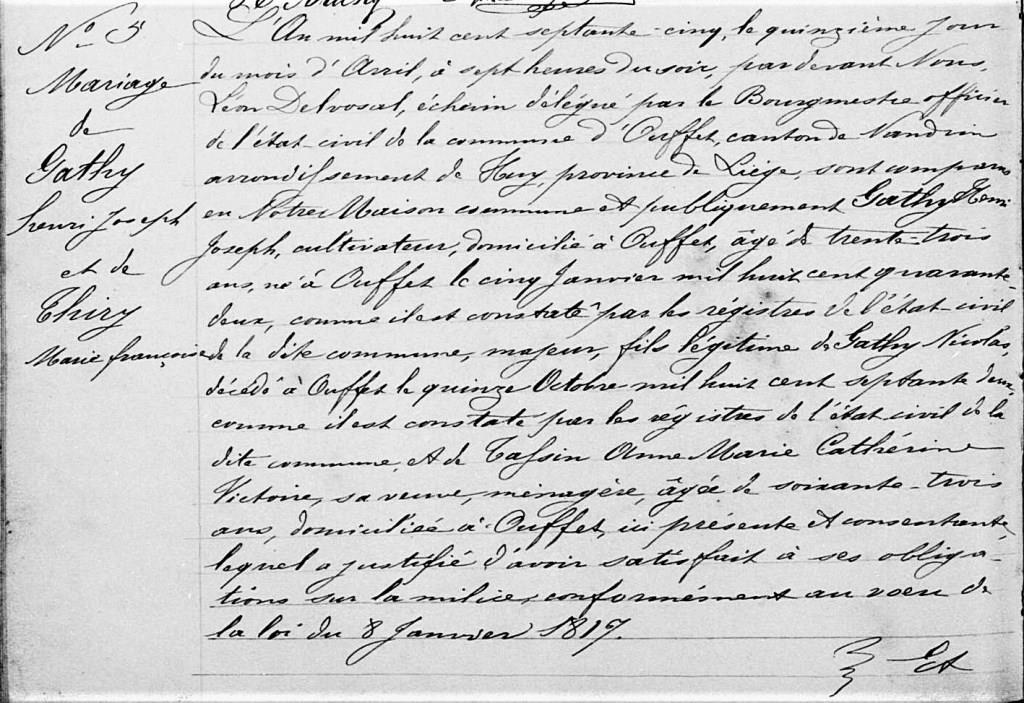 N° 5
Mariage
de
Gathy
henri Joseph
et de
Thiry
Marie françoise
L'An mil huit cent septante-cinq, le quinzième jour
du mois d'Avril, à sept heures du soir, pardevant Nous,
Léon Delvosal, échevin délégué par le Bourgmestre officier
de l'état-civil de la commune d'Ouffet, canton de Nandrin
arrondissement de Huy, province de Liège, sont comparus
en Notre Maison commune et publiquement Gathy Henri
Joseph, cultivateur, domicilié à Ouffet, âgé de trente-trois
ans, né à Ouffet le cinq Janvier mil huit cent quarante-
deux, comme il est constaté par les régistres de l'état-civil
de la dite commune, majeur, fils légitime de Gathy Nicolas,
décédé à Ouffet le quinze Octobre mil huit cent septante deux,
comme il est constaté par les régistres de l'état-civil de la
dite commune, et de Tassin Anne Marie Cathérine
Victoire, sa veuve, ménagère, âgée de soixante-trois
ans, domiciliée à Ouffet, ici présente et consentante,
lequel a justifié d'avoir satisfait à ses obliga-
tions sur la milice, conformément au voeu de
la loi du 8 Janvier 1817.
Et